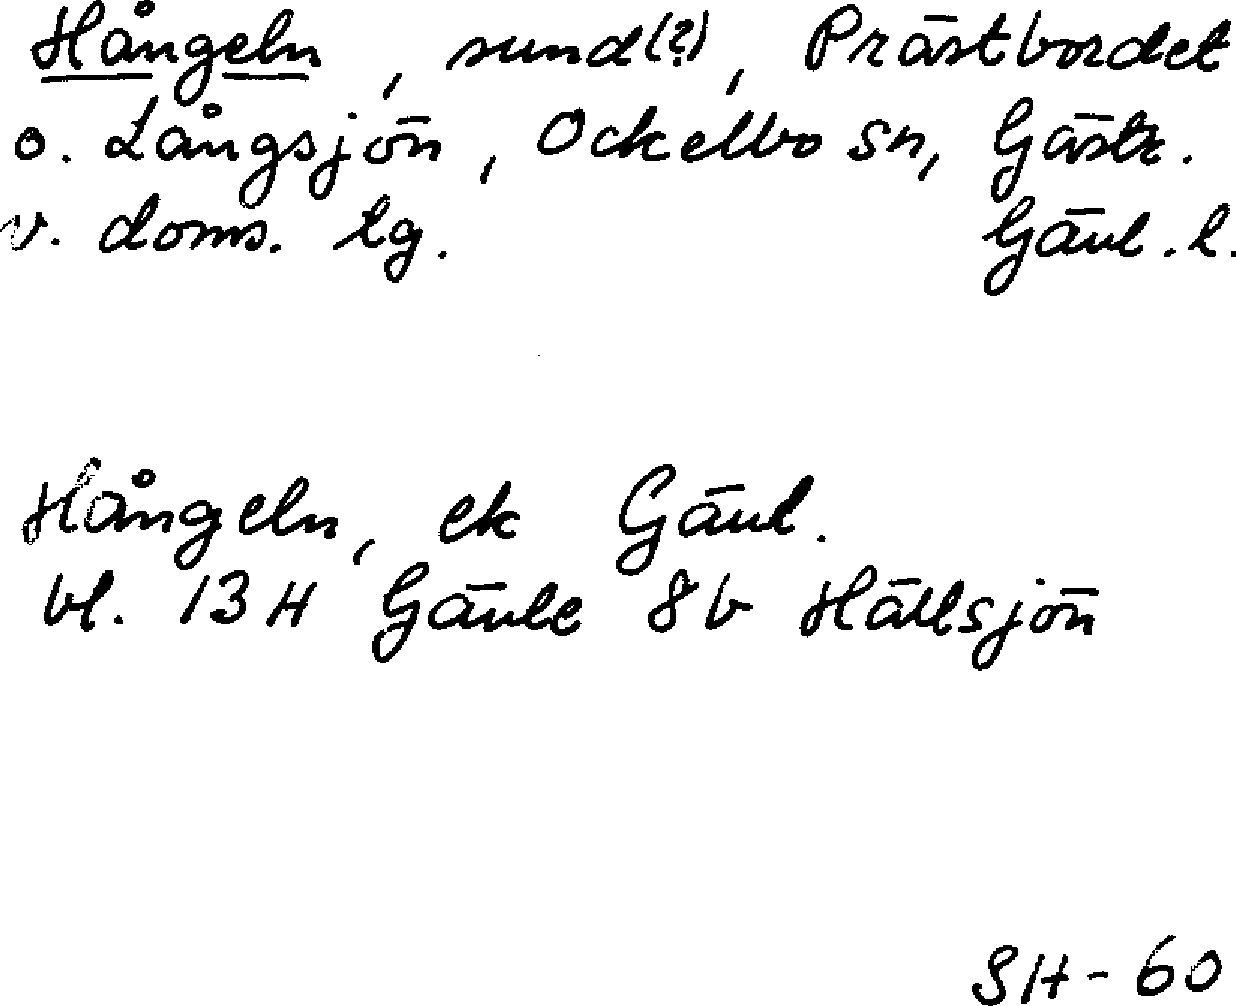 Hångeln, sund(?), Prästbordet
o. Långsjön, Ockelbo sn, Gästr.
v. doms. lg. Gävl. l.
Hångeln, ek Gävl.
bl. 13 H Gävle 8b Hällsjön
SH-60